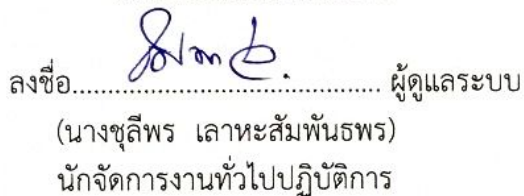 ลงชื่อ............................................ ผู้ดูแลระบบ
(นางชุลีพร เลาหะสัมพันธพร)
นักจัดการงานทั่วไปปฏิบัติการ